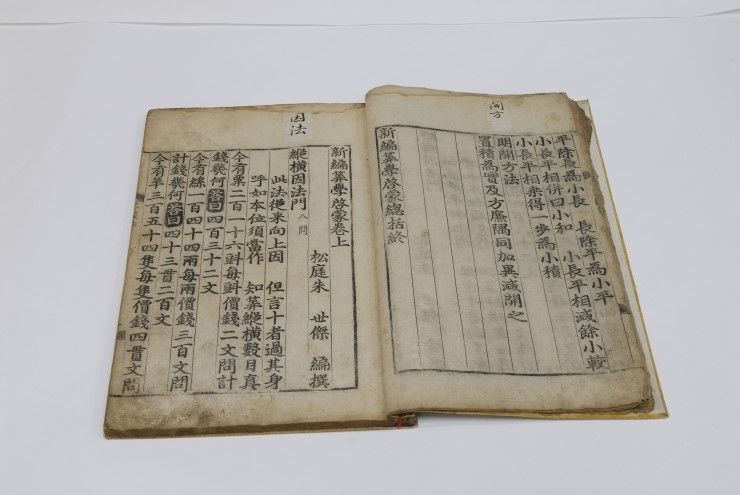 開方
平除長為小長　長除平為小平
小長平相併曰小和　小長平相減餘小較
小長平相乘得一步為小積
明開方法
置積為實及方廉隅同加異減開之
新編筭學啓蒙總括終
因法
新編筭學啓蒙卷上
松庭朱　世傑　編撰
縱橫因法門八問
此法從來向上因　但言十者過其身
呼如本位須當作　知筭縱橫數目真
今有粟二百一十六㪷每㪷價錢二文問計
錢幾何荅曰四百三十二文
今有絲一百四十四兩每兩價錢三百文問
計錢幾何荅曰四十三貫二百文
今有羊三百五十四隻每隻價錢四貫文問